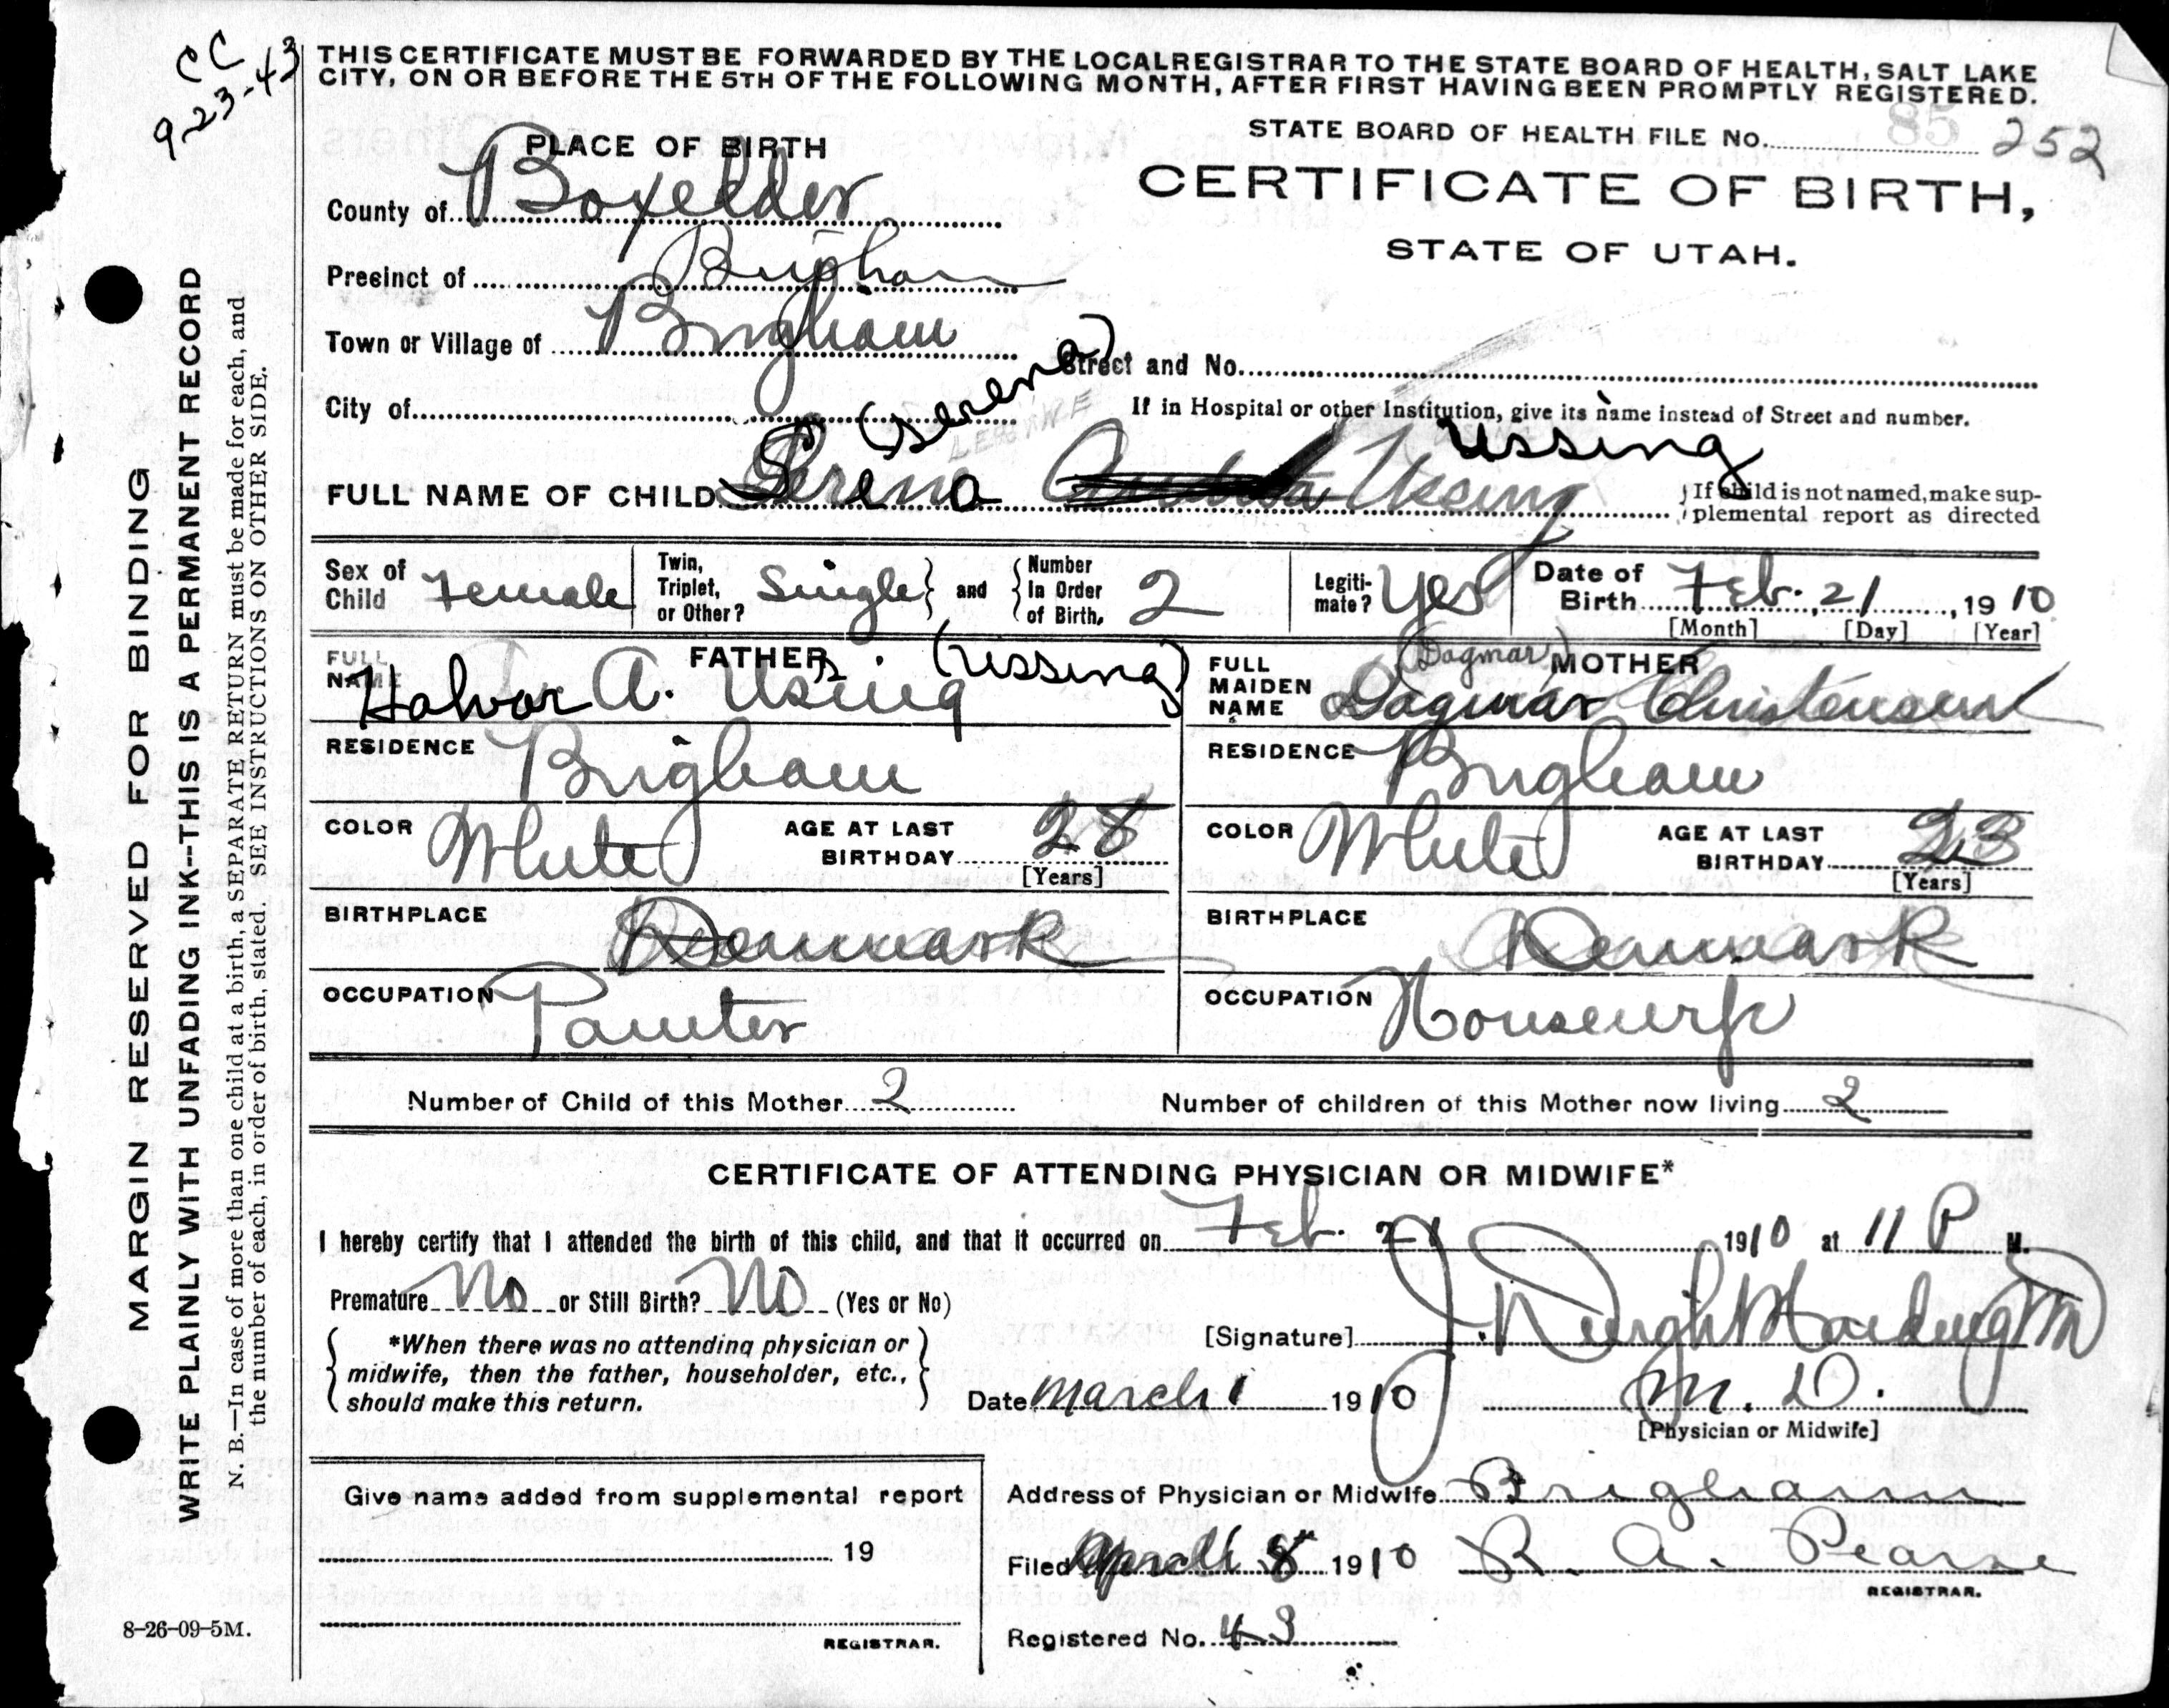 CC
9-23-43
THIS CERTIFICATE MUST BE FORWARDED BY THE LOCAL REGISTRAR TO THE STATE BOARD OF HEALTH, SALT LAKE
CITY, ON OR BEFORE THE 5TH OF THE FOLLOWING MONTH, AFTER FIRST HAVING BEEN PROMPTLY REGISTERED.
STATE BOARD OF HEALTH FILE No. 85 252
CERTIFICATE OF BIRTH,
STATE OF UTAH.
PLACE OF BIRTH
County of Boxelder
Precinct of Brigham
Town or Village of Brigham
Street and No.
City of
If in Hospital or other Institution, give its name instead of Street and number.
(Serena) Ussing
FULL NAME OF CHILD Serena Ussing
If child is not named, make sup-
plemental report as directed
Sex of Child Female
Twin, Triplet, or Other? Single and Number in Order of Birth. 2
Legiti-mate? Yes
Date of Birth Feb. 21, 1910
[Month] [Day] [Year]
FATHER
(Ussing)
FULL NAME Halvor A. Ussing
RESIDENCE Brigham
COLOR White AGE AT LAST BIRTHDAY 28
[Years]
BIRTHPLACE Denmark
OCCUPATION Painter
MOTHER
(Dagmar)
FULL MAIDEN NAME Dagmar Christensen
RESIDENCE Brigham
COLOR White AGE AT LAST BIRTHDAY 23
[Years]
BIRTHPLACE Denmark
OCCUPATION Housewife
Number of Child of this Mother 2 Number of children of this Mother now living 2
CERTIFICATE OF ATTENDING PHYSICIAN OR MIDWIFE*
I hereby certify that I attended the birth of this child, and that it occurred on Feb. 21 1910 at 11 P M.
Premature No or Still Birth? No (Yes or No)
*When there was no attending physician or
midwife, then the father, householder, etc.,
should make this return.
[Signature] J. Harding
Date March 1 1910 M. D.
[Physician or Midwife]
Give name added from supplemental report
19
REGISTRAR.
Address of Physician or Midwife Brigham
Filed April 8 1910 R. A. Pearse
REGISTRAR.
Registered No. 43
8-26-09-5M.
MARGIN RESERVED FOR BINDING
WRITE PLAINLY WITH UNFADING INK--THIS IS A PERMANENT RECORD
N. B.—In case of more than one child at a birth, a SEPARATE RETURN must be made for each, and
the number of each, in order of birth, stated. SEE INSTRUCTIONS ON OTHER SIDE.